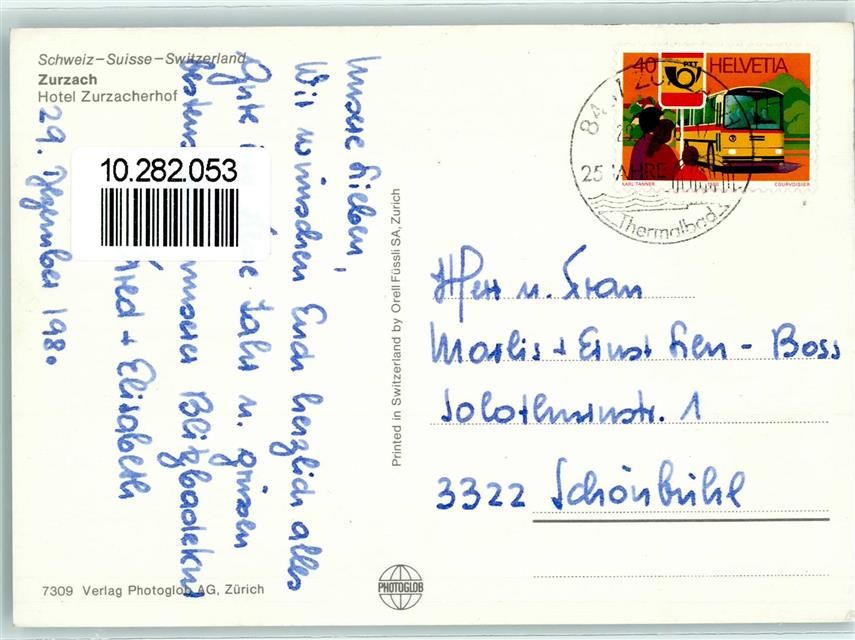 Schweiz–Suisse–Switzerland
Zurzach
Hotel Zurzacherhof
29. Dezember 1980
Unsere Lieben,
Wir wünschen Euch herzlich alles
Gute Jahr u. grüssen
bestens unserer Blitzbadekur
Elisabeth
10.282.053
7309 Verlag Photoglob AG, Zürich
Printed in Switzerland by Orell Füssli SA, Zürich
PHOTOGLOB
40 PTT HELVETIA
KARL TANNER COURVOISIER
25 JAHRE
Thermalbad
Herr u. Frau
Marlis + Ernst Leu - Boss
Solothurnstr. 1
3322 Schönbühl